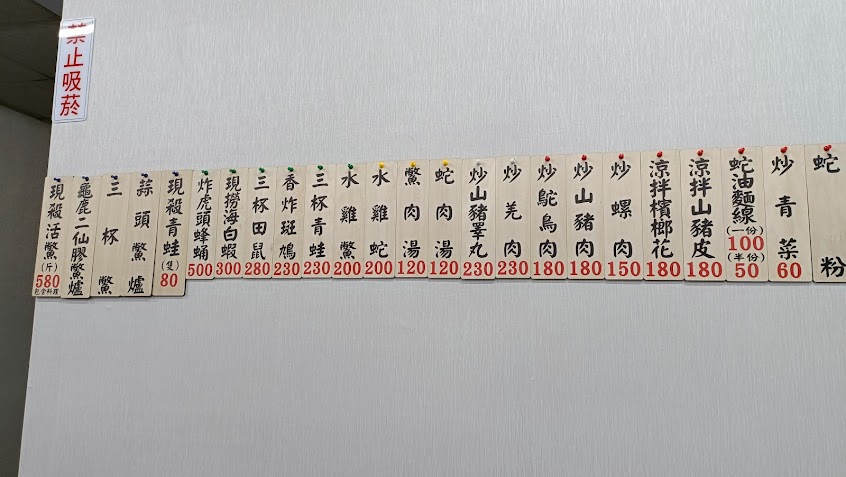 禁止吸菸
現殺活鱉(斤)580包含料理
龜鹿二仙膠鱉爐
三杯鱉
蒜頭鱉爐
現殺青蛙(隻)80
炸虎頭蜂蛹500
現撈海白蝦300
三杯田鼠280
香炸斑鳩230
三杯青蛙230
水雞鱉200
水雞蛇200
鱉肉湯120
蛇肉湯120
炒山豬睪丸230
炒羌肉230
炒鴕鳥肉180
炒山豬肉180
炒螺肉150
涼拌檳榔花180
涼拌山豬皮180
蛇油麵線(一份)100(半份)50
炒青菜60
蛇粉